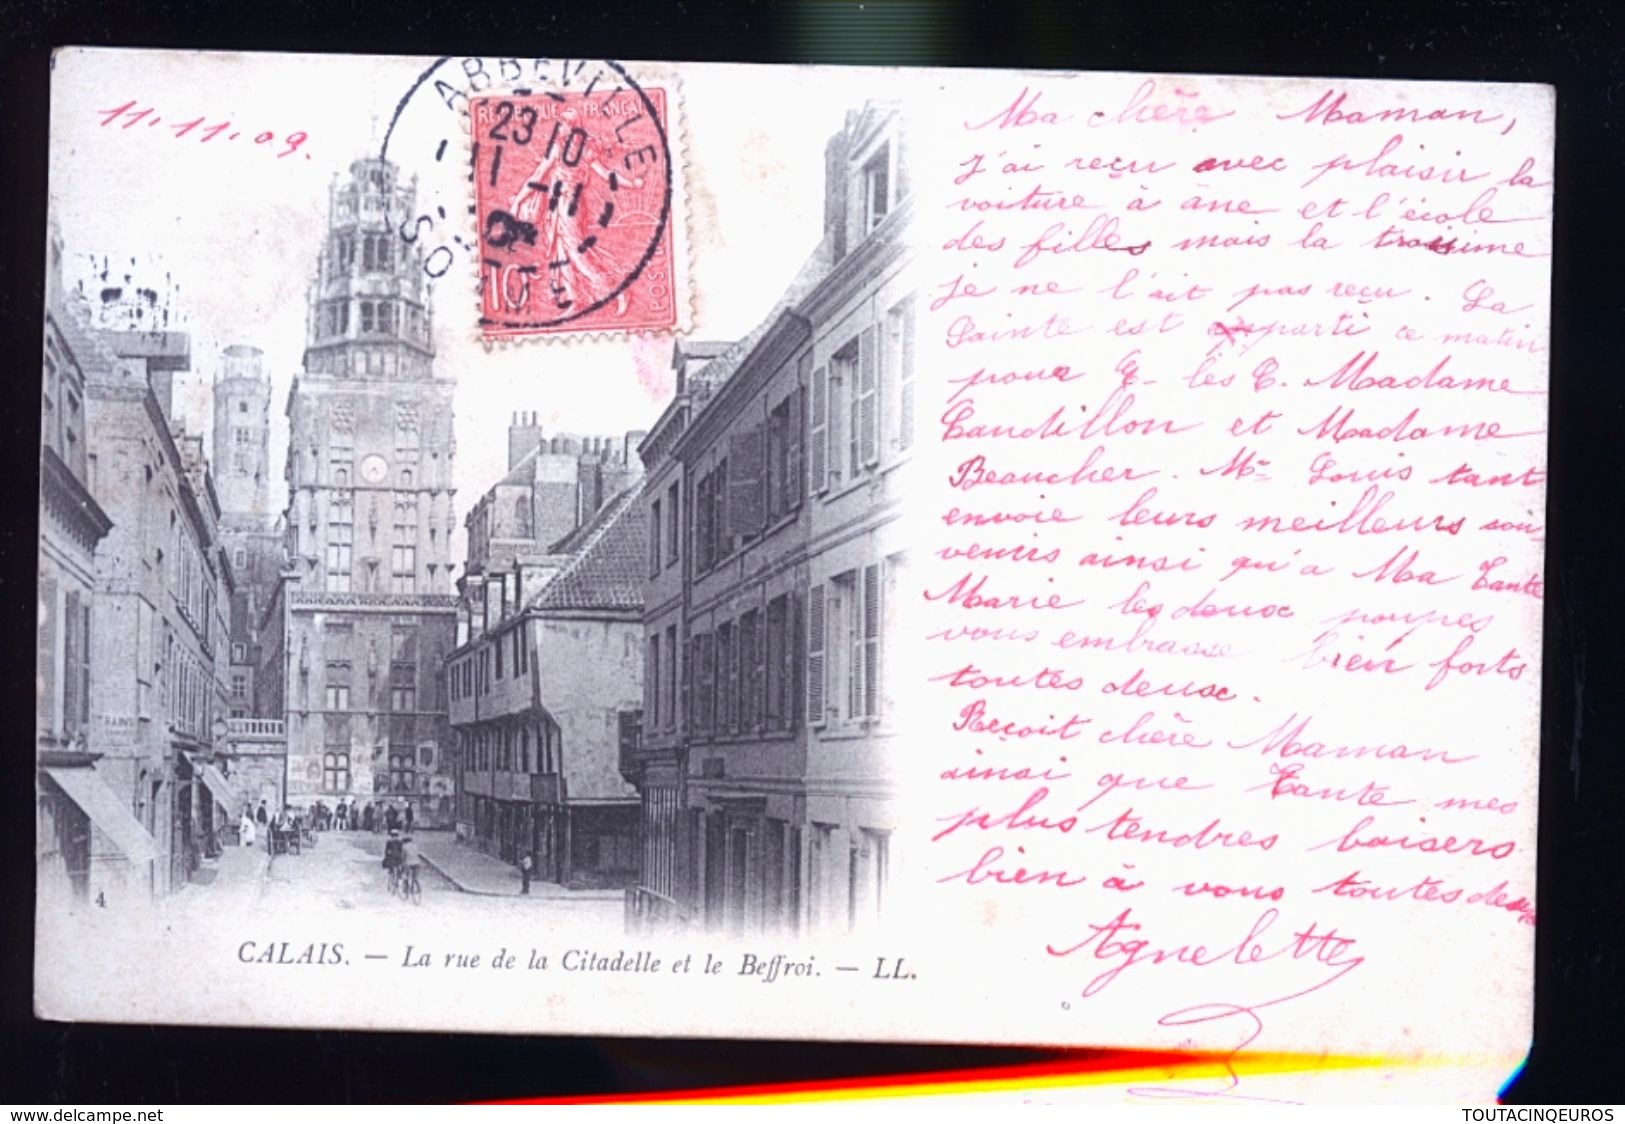 11.11.09.
ABBEVILLE
23 10
11 -11
SOMME
REPUBLIQUE FRANÇAISE
10c
POSTES
Ma chère Maman,
J'ai reçu avec plaisir la
voiture à âne et l'école
des filles mais la troisime
je ne l'ait pas reçu. La
Sainte est parti ce matin
pour les Madame
Candillon et Madame
Beaucher. Mr Louis tant
envoie leurs meilleurs sou-
venirs ainsi qu'a Ma Tante
Marie les deux poupes
vous embrasse bien forts
toutes deux.
Reçoit chère Maman
ainsi que Tante mes
plus tendres baisers
bien à vous toutes deux
Agnelette
BAINS
4
CALAIS. — La rue de la Citadelle et le Beffroi. — LL.
www.delcampe.net
TOUTACINQEUROS